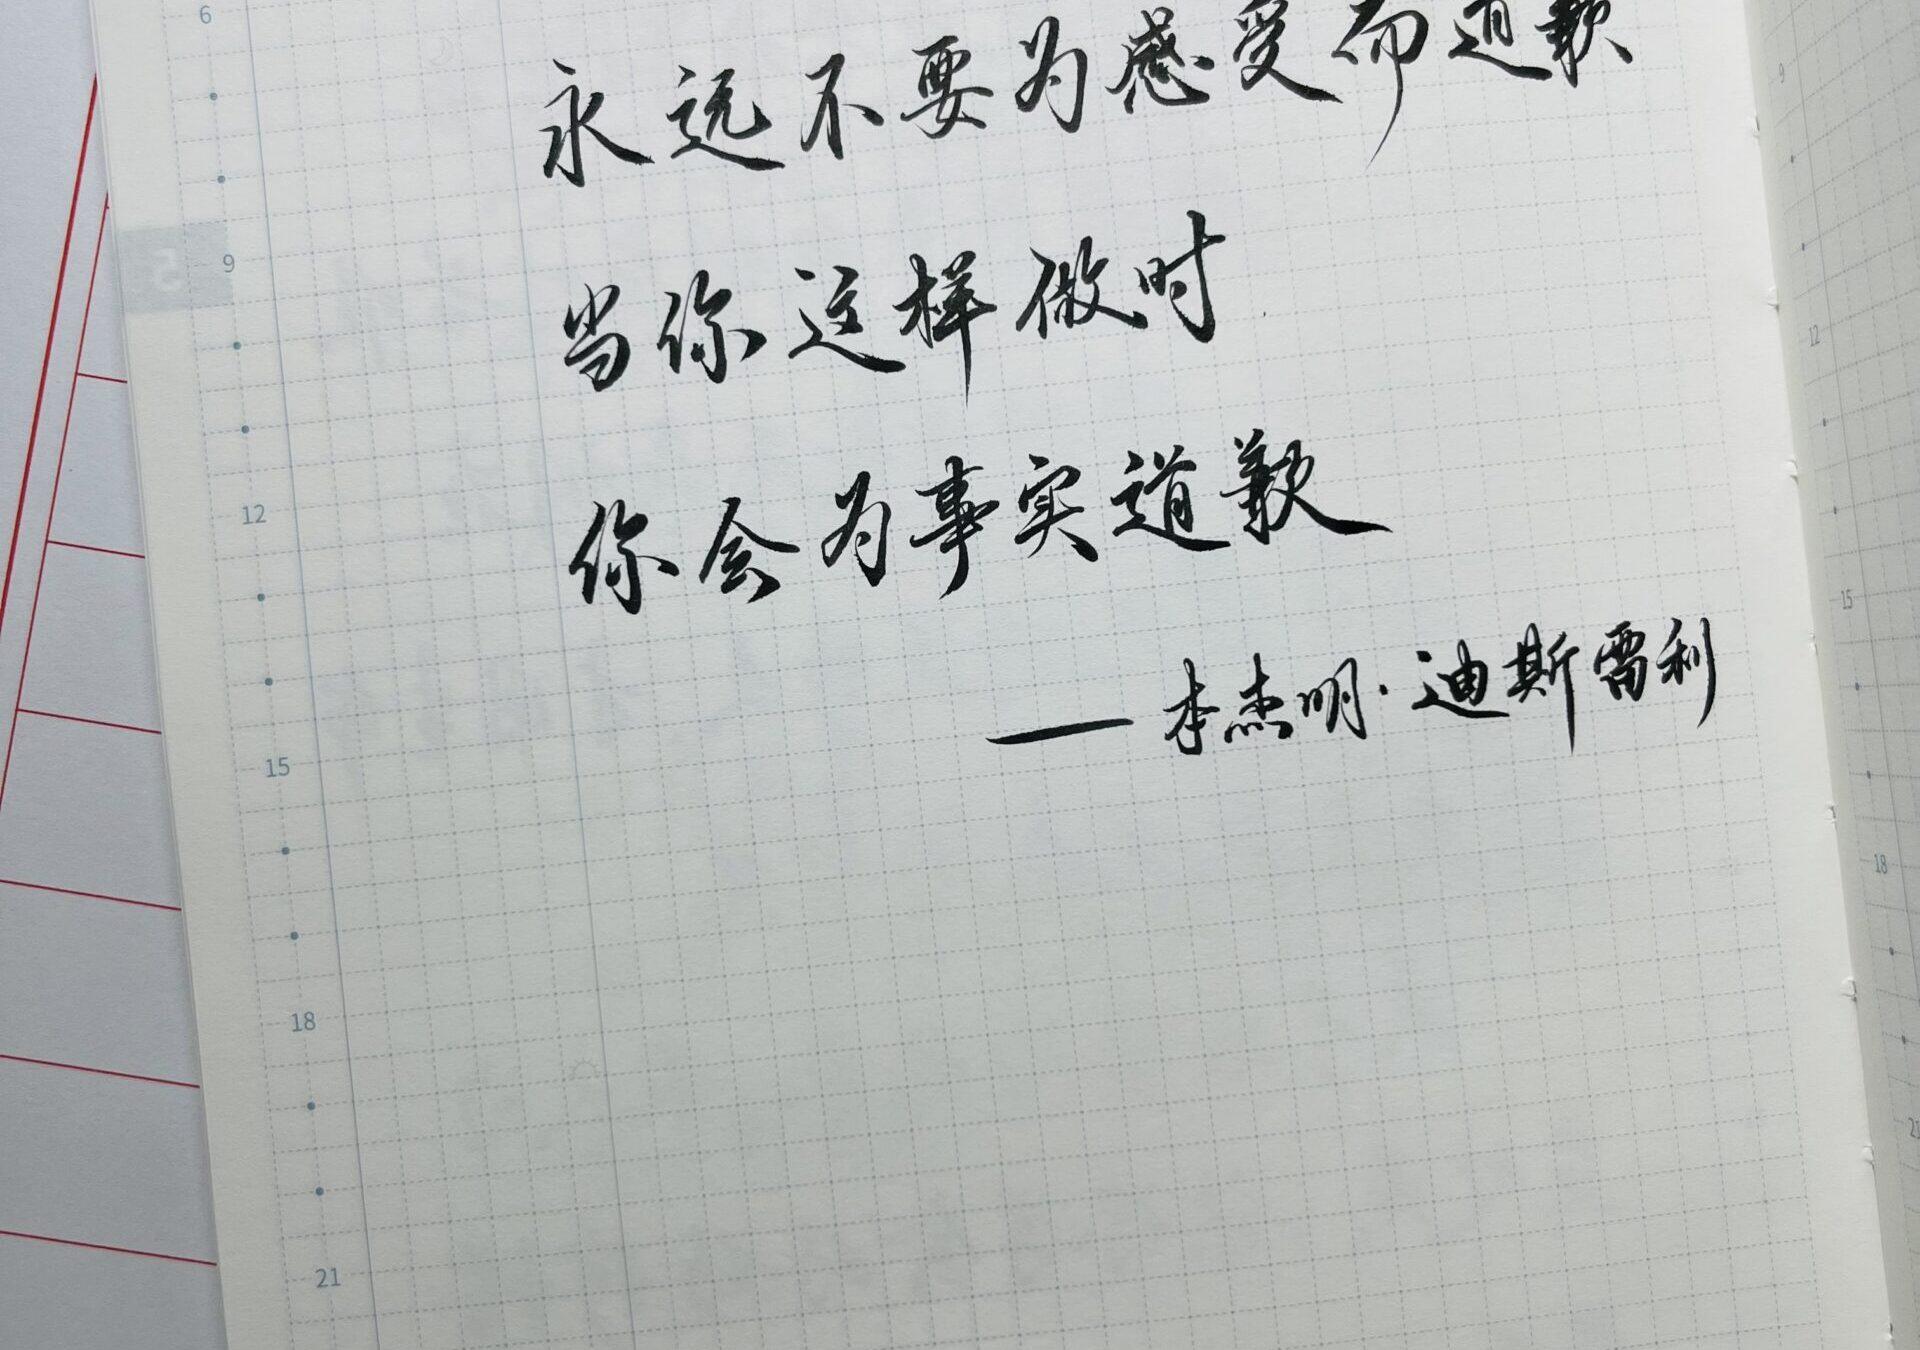 6
永远不要为感受而道歉
9
当你这样做时
12
你会为事实道歉
——本杰明·迪斯雷利
15
18
21
9
12
15
18